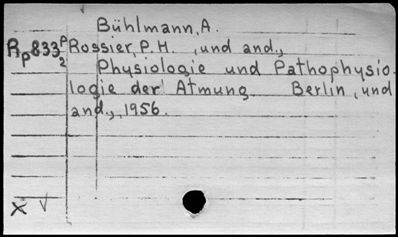 Bühlmann, A.
Rp833 P2 Rossier, P.H., und and.,
Physiologie und Pathophysio-
logie der Atmung. Berlin, und
and., 1956.
X √